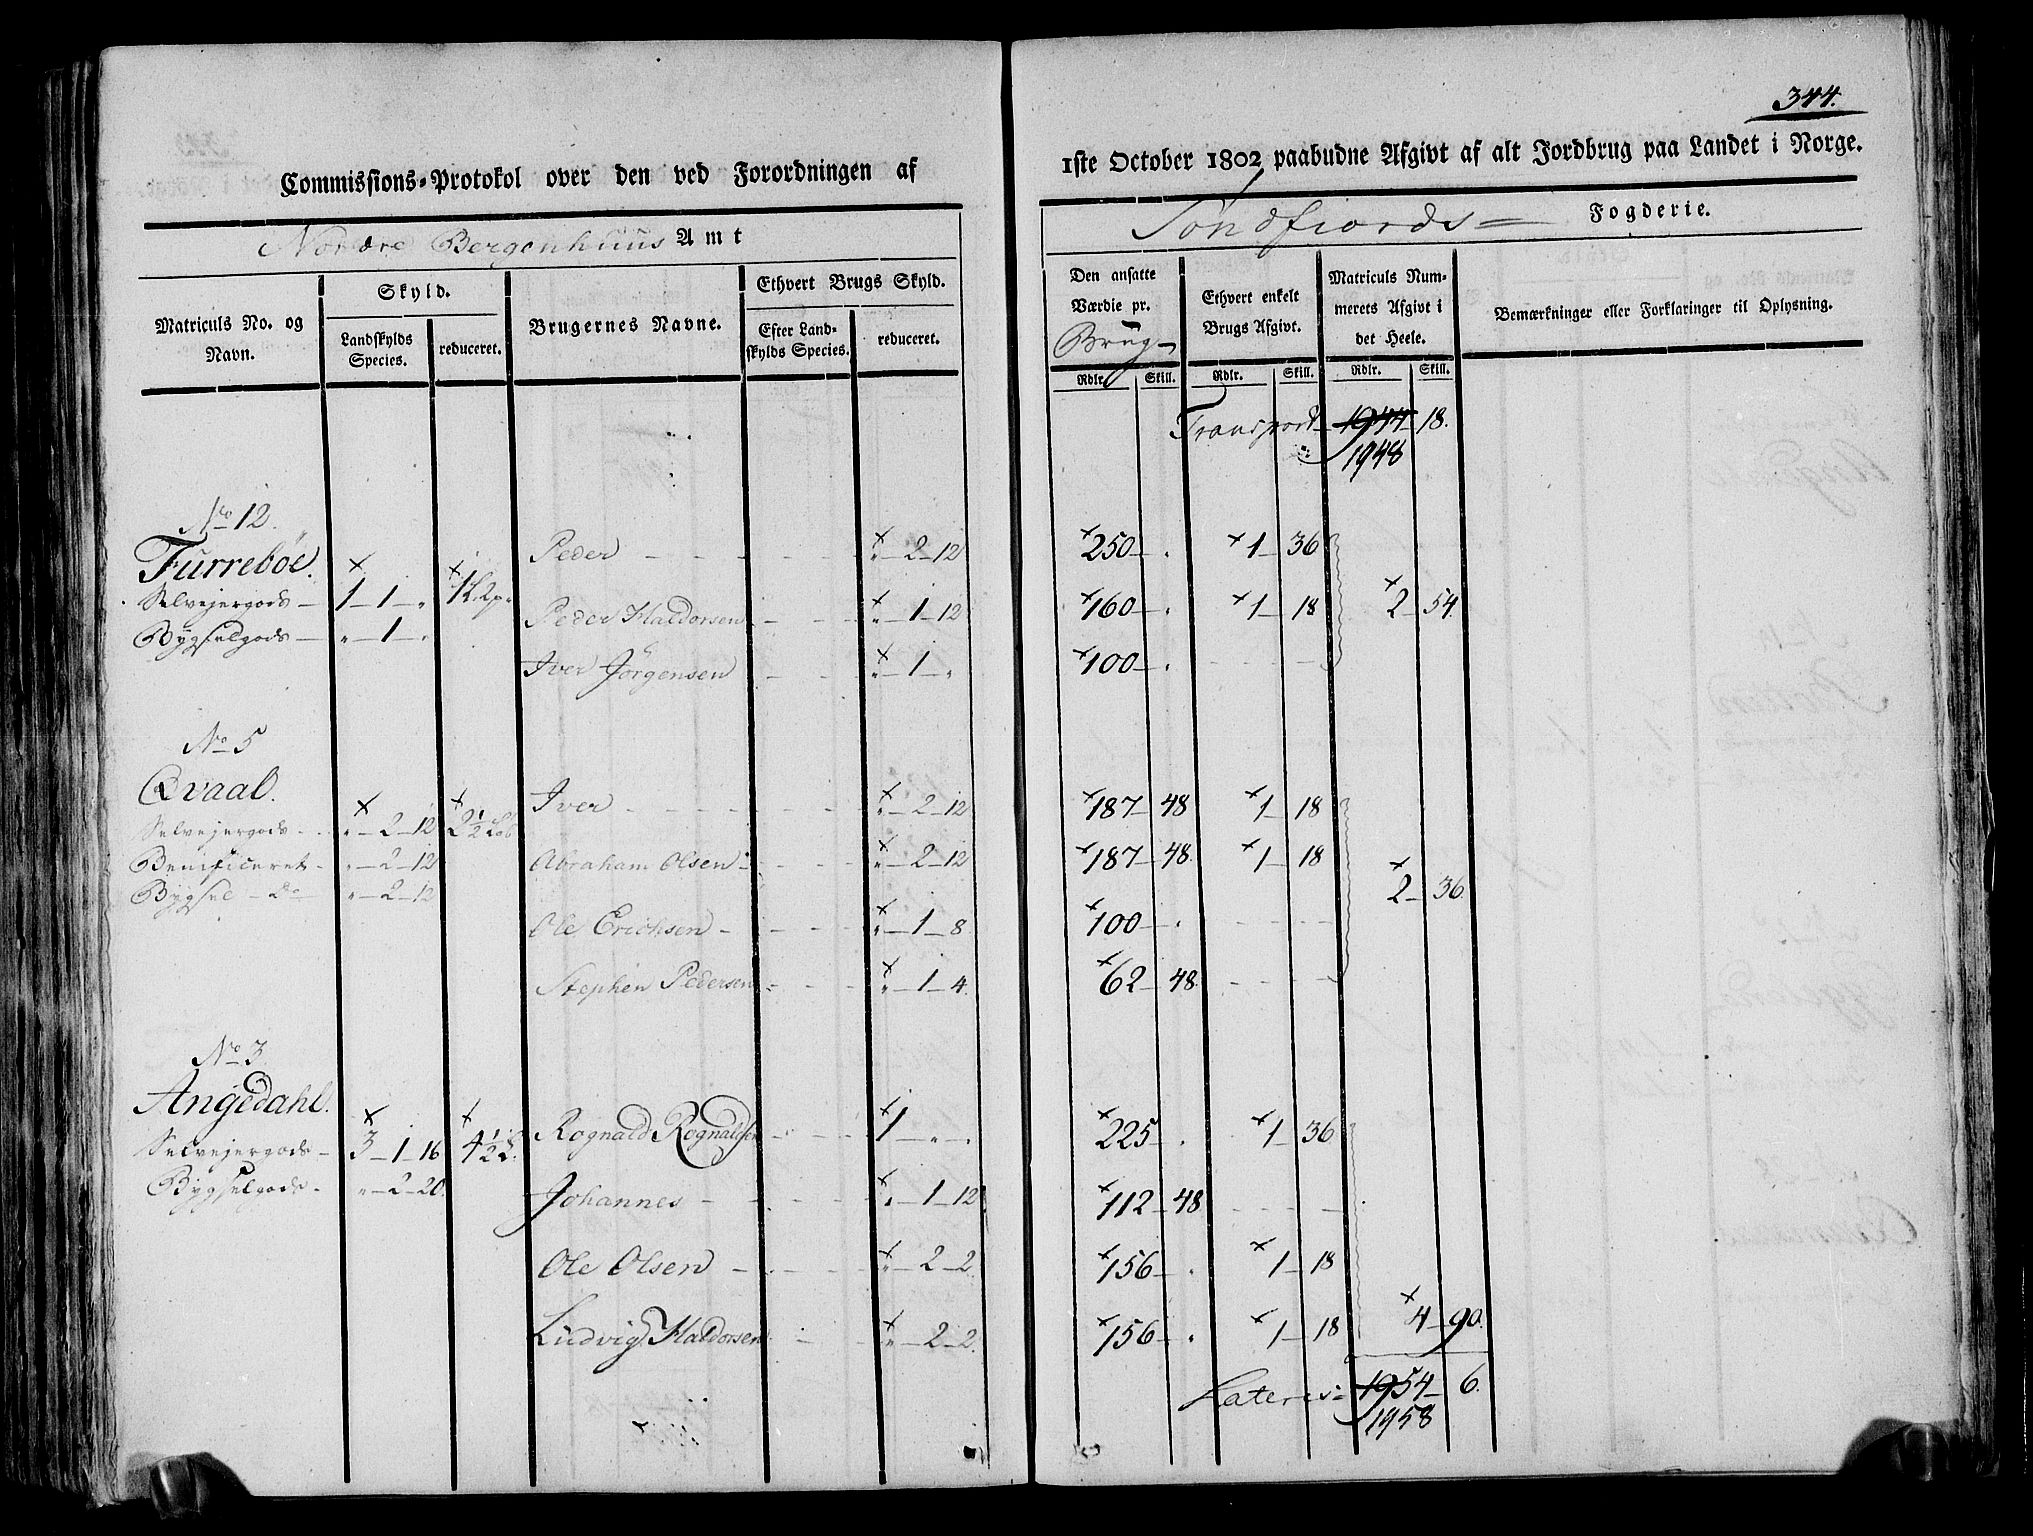 344.
Commissions-Protokol over den ved Forordningen af
1ste October 1802 paabudne Afgivt af alt Jordbrug paa Landet i Norge.
Nordre Bergenhuus Amt
Søndfiords Fogderie.
Matriculs No. og Navn.
Skyld.
Landskylds Species.
reduceret.
Brugernes Navne.
Ethvert Brugs Skyld.
Efter Landskylds Species.
reduceret.
Den ansatte Værdie pr. Brug
Ethvert enkelt Brugs Afgivt.
Matriculs Nummerets Afgivt i det Heele.
Bemærkninger eller Forklaringer til Oplysning.
Rdlr. Skill. Rdlr. Skill. Rdlr. Skill.
Transport 1944 18.
1948
No 12.
Furrebøe.
Peder - - - " - 2 - 12 250 - " 1 - 36
Selvejergods - 1 - 1 - "
Peder Haldorsen - - " - 1 - 12 160 - " 1 - 18 2 - 54.
Bygselgods - " - 1 - "
Iver Jörgensen - - " - 1 - " 100 - " - - -
No 5
Qvaal.
Iver - - - " - 2 - 12 187 - 48 1 - 18
Selvejergods - " - 2 - 12 2½
Abraham Olsen - - " - 2 - 12 187 - 48. 1 - 18
Beneficeret - " - 2 - 12
2 - 36.
Bygsel - do - " - 2 - 12
Ole Erichsen - - - " - 1 - 8 100 - " - - -
Stephen Pedersen - - " - 1 - 4. 62 - 48. - - -
No 3
Angedahl.
Rognald Rognaldsen - - 1 - " - " 225 - " 1 - 36
Selvejergods - 3 - 1 - 16 4½
Bygselgods - " - 2 - 20.
Johannes - - - " - 1 - 12 112 - 48 - - -
Ole Olsen - - - " - 2 - 2. 156 - " 1 - 18
Ludvig Haldorsen - " - 2 - 2. 156 - " 1 - 18 4 - 90.
Lateris 1954 - 6.
1958